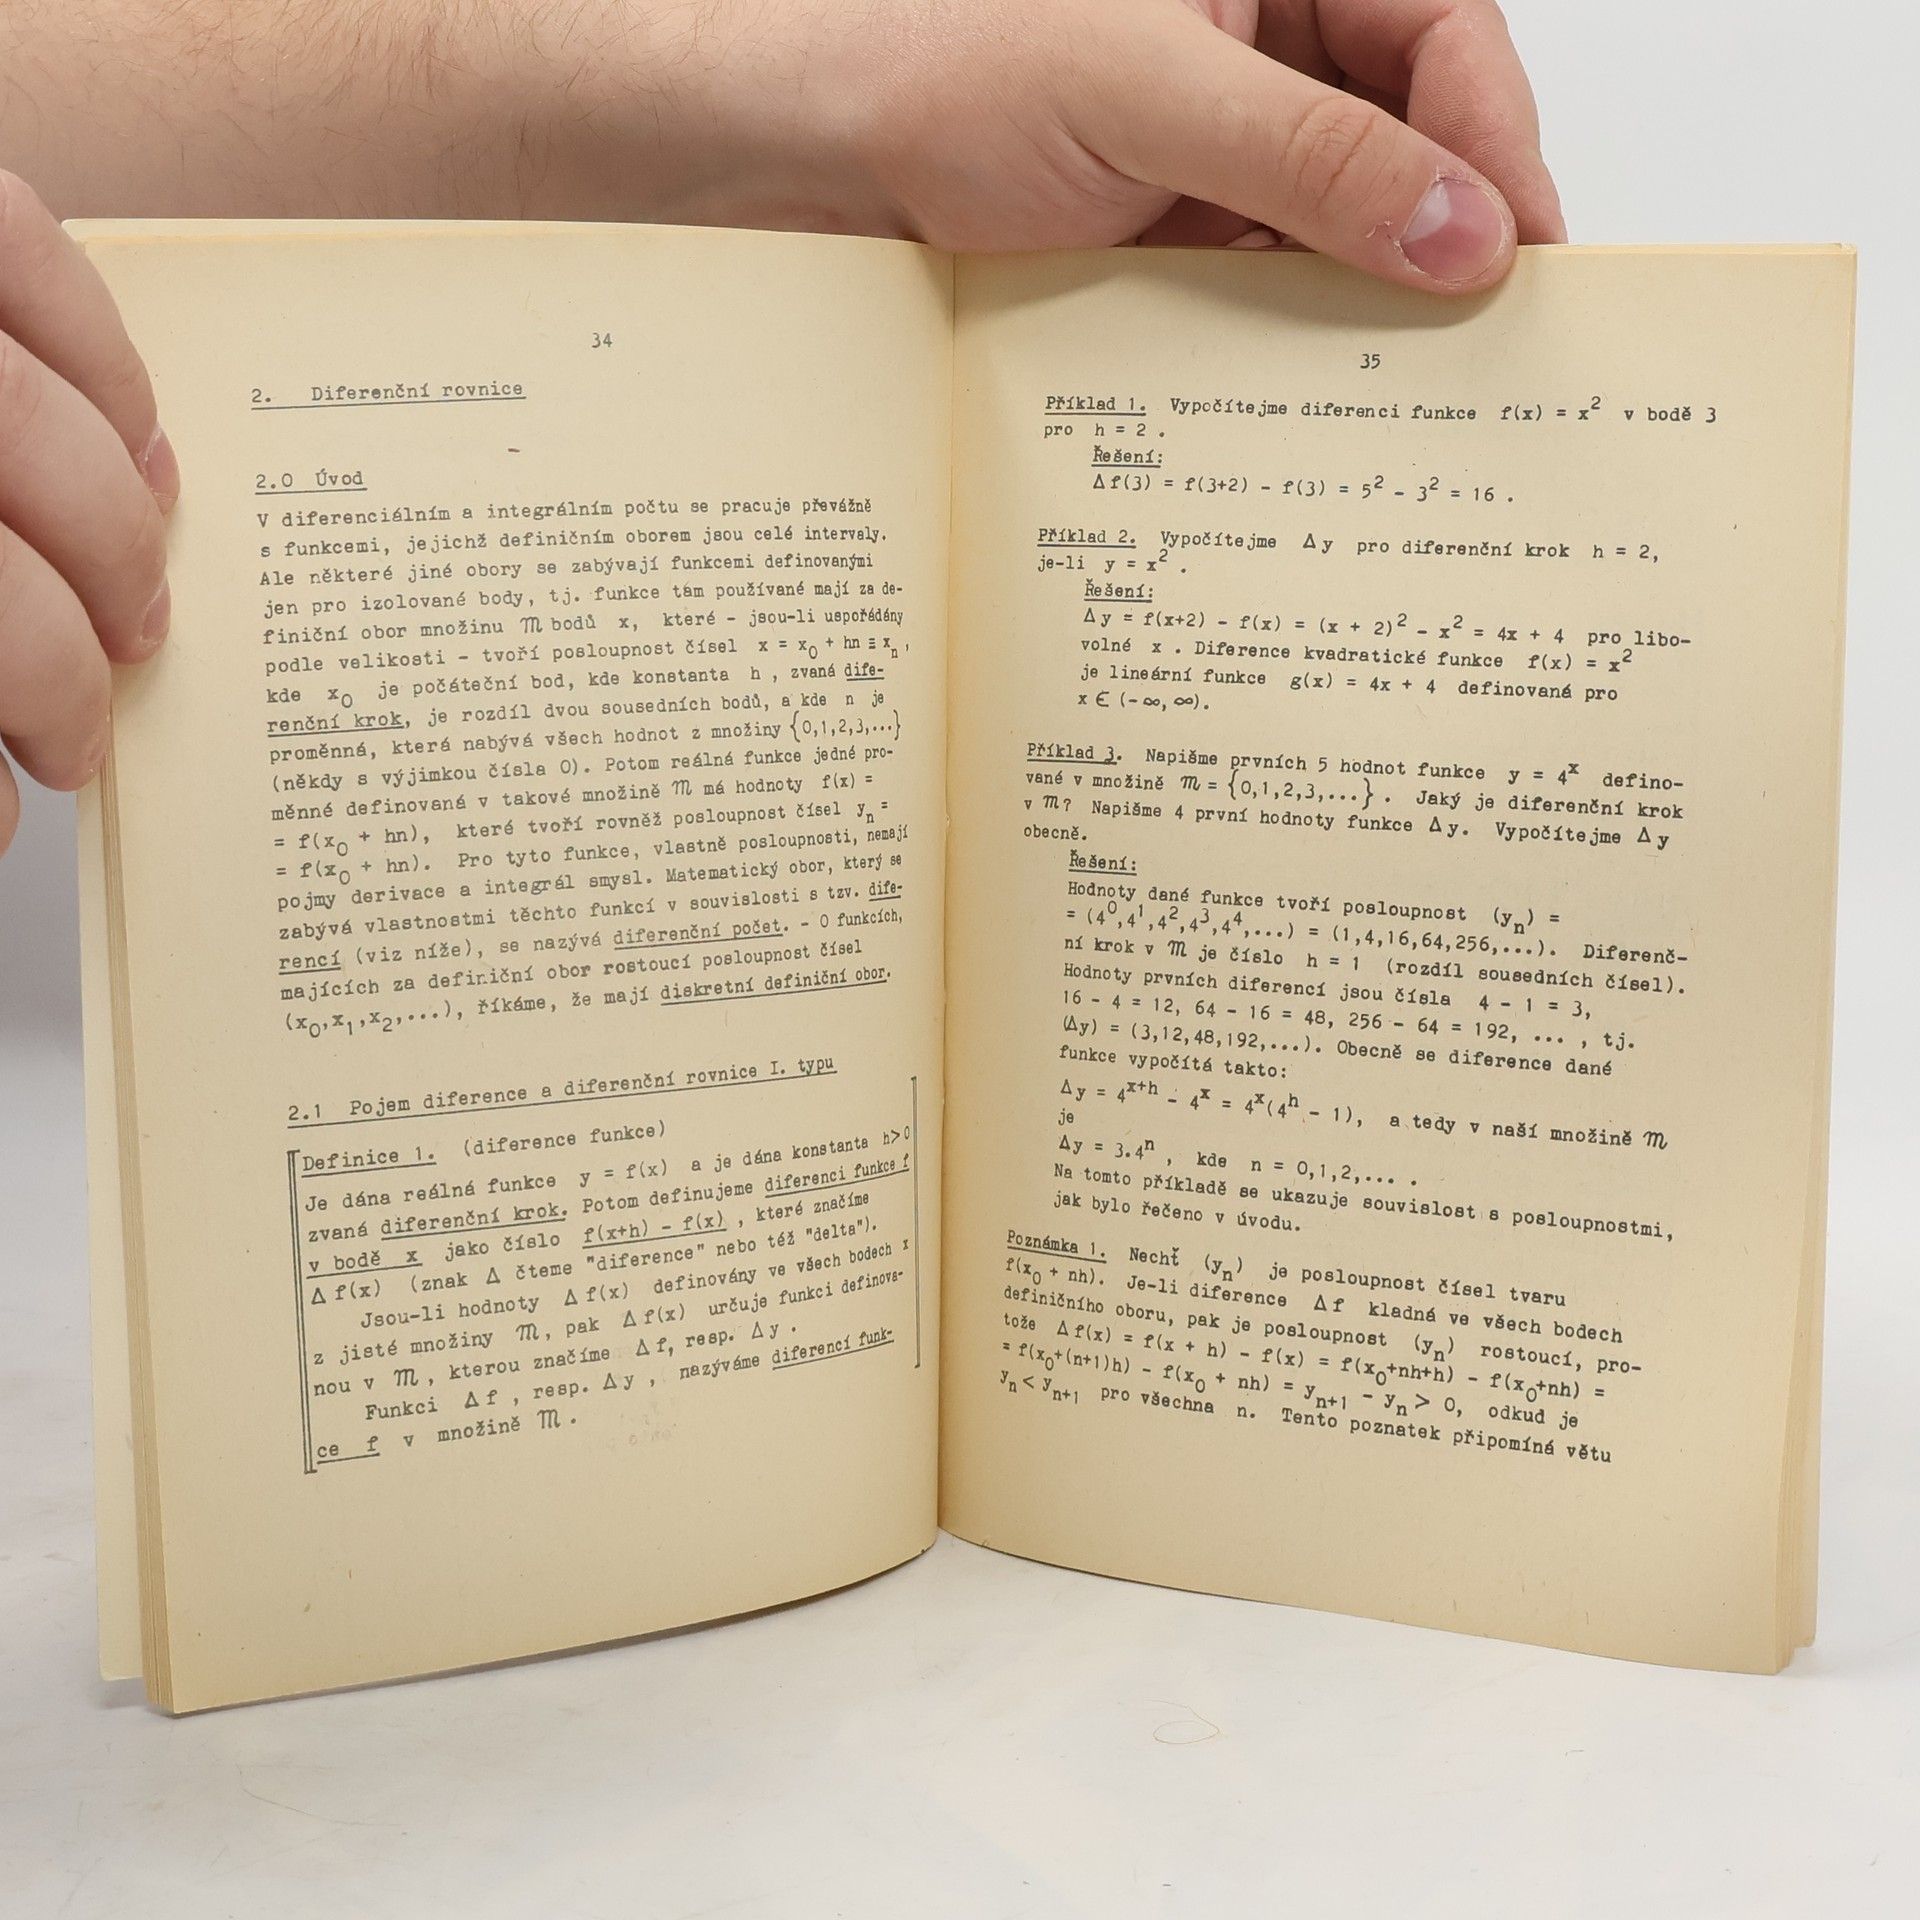 34
2. Diferenční rovnice
2.0 Úvod
V diferenciálním a integrálním počtu se pracuje převážně
s funkcemi, jejichž definičním oborem jsou celé intervaly.
Ale některé jiné obory se zabývají funkcemi definovanými
jen pro izolované body, tj. funkce tam používané mají za de-
finiční obor množinu 𝔐 bodů x, které - jsou-li uspořádány
podle velikosti - tvoří posloupnost čísel x = x₀ + hn ≡ xₙ,
kde x₀ je počáteční bod, kde konstanta h, zvaná dife-
renční krok, je rozdíl dvou sousedních bodů, a kde n je
proměnná, která nabývá všech hodnot z množiny {0,1,2,3,...}
(někdy s výjimkou čísla 0). Potom reálná funkce jedné pro-
měnné definovaná v takové množině 𝔐 má hodnoty f(x) =
= f(x₀ + hn), které tvoří rovněž posloupnost čísel yₙ =
= f(x₀ + hn). Pro tyto funkce, vlastně posloupnosti, nemají
pojmy derivace a integrál smysl. Matematický obor, který se
zabývá vlastnostmi těchto funkcí v souvislosti s tzv. dife-
rencí (viz níže), se nazývá diferenční počet. - O funkcích,
majících za definiční obor rostoucí posloupnost čísel
(x₀,x₁,x₂,...), říkáme, že mají diskretní definiční obor.
2.1 Pojem diference a diferenční rovnice I. typu
Definice 1. (diference funkce)
Je dána reálná funkce y = f(x) a je dána konstanta h>0
zvaná diferenční krok. Potom definujeme diferenci funkce f
v bodě x jako číslo f(x+h) - f(x), které značíme
Δf(x) (znak Δ čteme "diference" nebo též "delta").
Jsou-li hodnoty Δf(x) definovány ve všech bodech x
z jisté množiny 𝔐, pak Δf(x) určuje funkci definova-
nou v 𝔐, kterou značíme Δf, resp. Δy.
Funkci Δf, resp. Δy, nazýváme diferencí funk-
ce f v množině 𝔐.
35
Příklad 1. Vypočítejme diferenci funkce f(x) = x² v bodě 3
pro h = 2 .
Řešení:
Δf(3) = f(3+2) - f(3) = 5² - 3² = 16 .
Příklad 2. Vypočítejme Δy pro diferenční krok h = 2,
je-li y = x² .
Řešení:
Δy = f(x+2) - f(x) = (x + 2)² - x² = 4x + 4 pro libo-
volné x . Diference kvadratické funkce f(x) = x²
je lineární funkce g(x) = 4x + 4 definovaná pro
x ∈ (-∞, ∞).
Příklad 3. Napišme prvních 5 hodnot funkce y = 4ˣ defino-
vané v množině 𝔐 = {0,1,2,3,...} . Jaký je diferenční krok
v 𝔐? Napišme 4 první hodnoty funkce Δy. Vypočítejme Δy
obecně.
Řešení:
Hodnoty dané funkce tvoří posloupnost (yₙ) =
= (4⁰,4¹,4²,4³,4⁴,...) = (1,4,16,64,256,...). Diferenč-
ní krok v 𝔐 je číslo h = 1 (rozdíl sousedních čísel).
Hodnoty prvních diferencí jsou čísla 4 - 1 = 3,
16 - 4 = 12, 64 - 16 = 48, 256 - 64 = 192, ... , tj.
(Δy) = (3,12,48,192,...). Obecně se diference dané
funkce vypočítá takto:
Δy = 4ˣ⁺ʰ - 4ˣ = 4ˣ(4ʰ - 1), a tedy v naší množině 𝔐
je
Δy = 3.4ⁿ , kde n = 0,1,2,... .
Na tomto příkladě se ukazuje souvislost s posloupnostmi,
jak bylo řečeno v úvodu.
Poznámka 1. Nechť (yₙ) je posloupnost čísel tvaru
f(x₀ + nh). Je-li diference Δf kladná ve všech bodech
definičního oboru, pak je posloupnost (yₙ) rostoucí, pro-
tože Δf(x) = f(x + h) - f(x) = f(x₀+nh+h) - f(x₀+nh) =
= f(x₀+(n+1)h) - f(x₀ + nh) = yₙ₊₁ - yₙ > 0, odkud je
yₙ < yₙ₊₁ pro všechna n. Tento poznatek připomíná větu